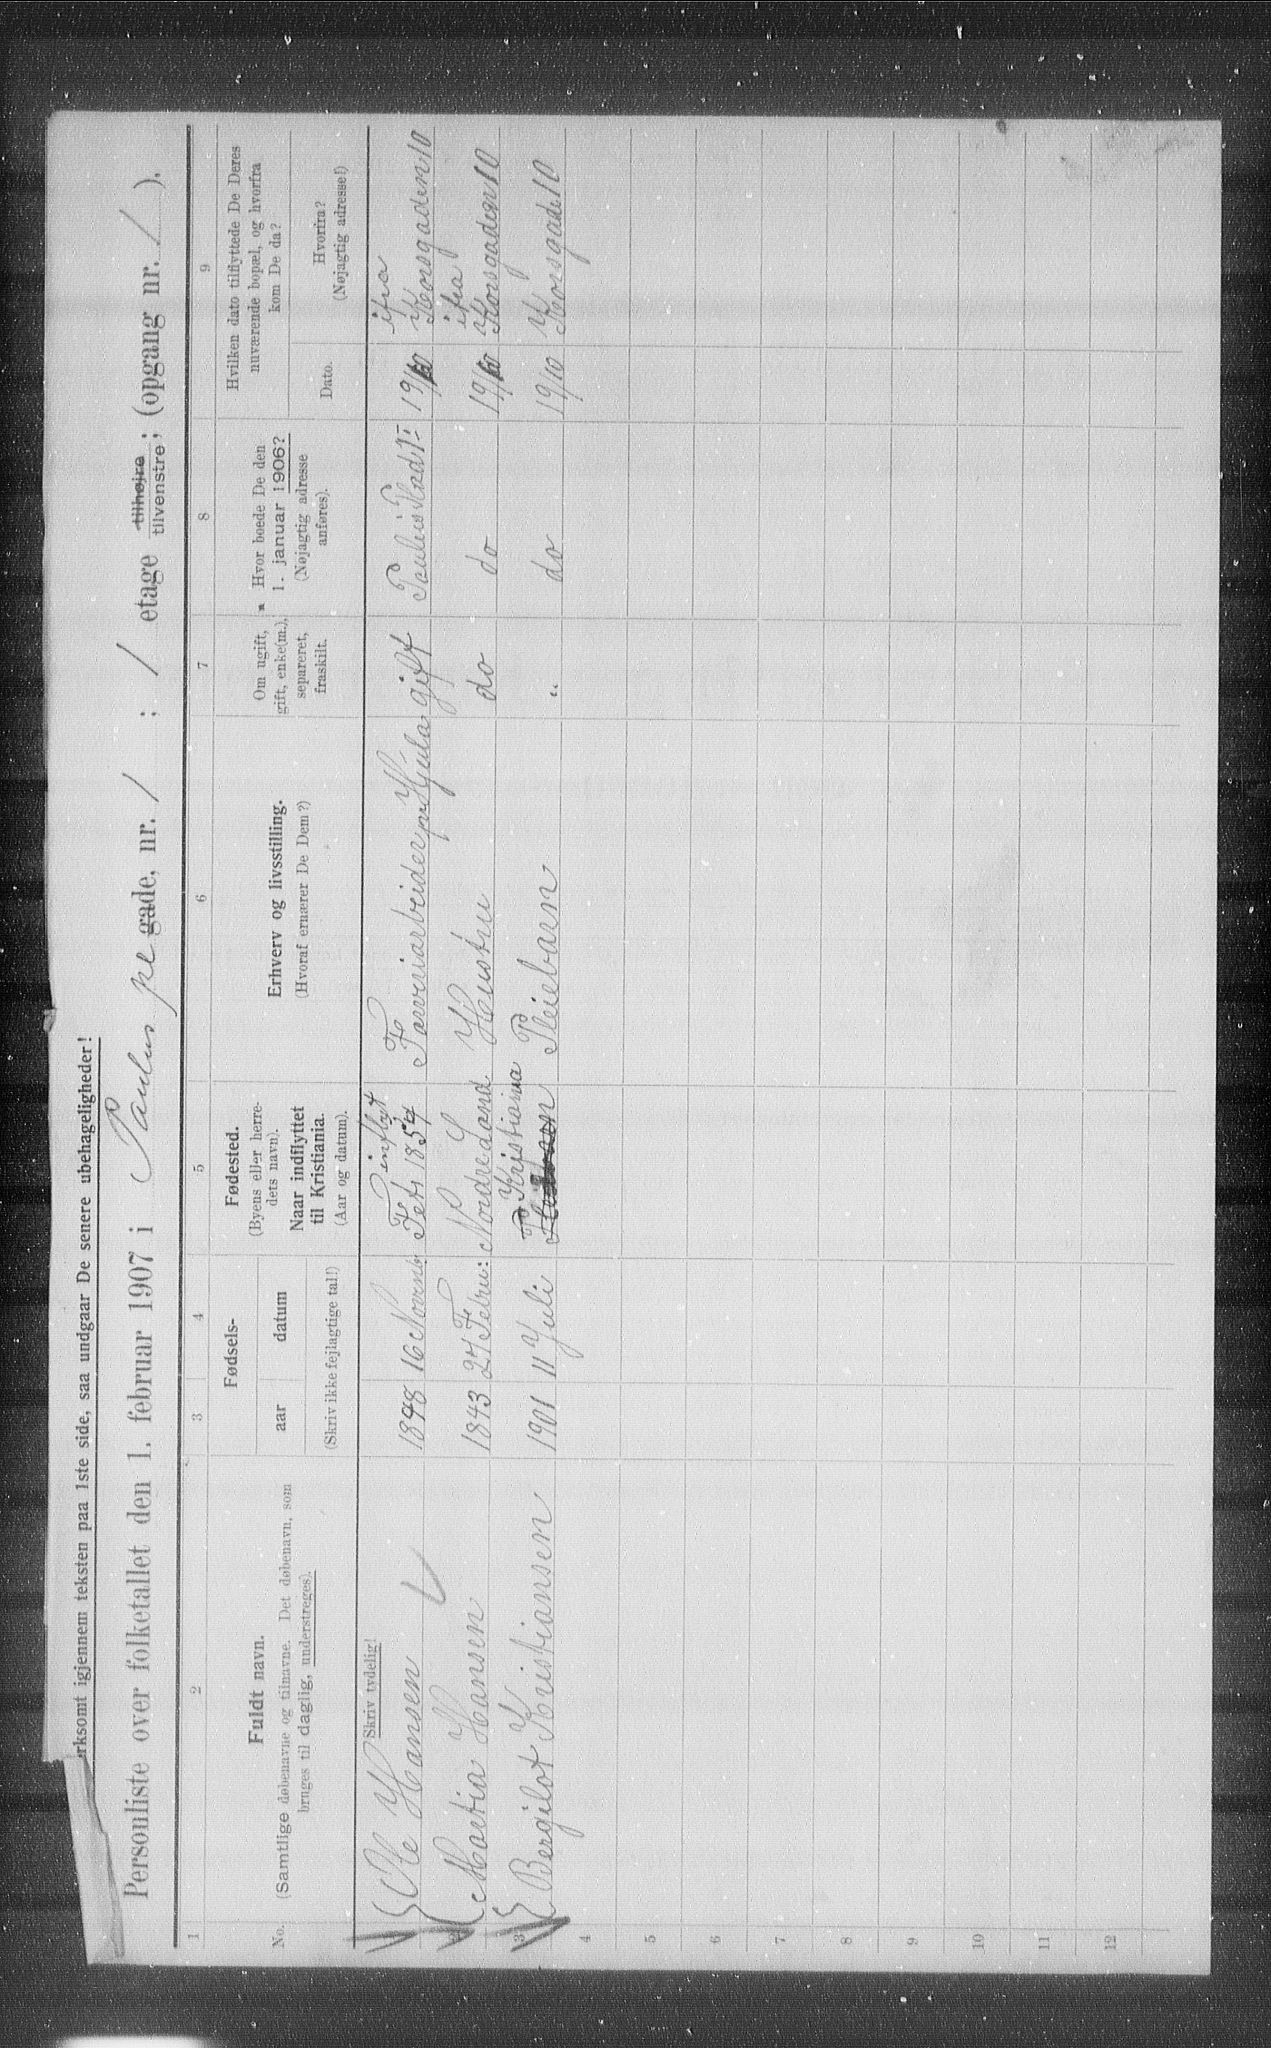 rksomt igjennem teksten paa 1ste side, saa undgaar De senere ubehageligheder!
Personliste over folketallet den 1. februar 1907 i Paulus pl gade, nr. 1 ; 1 etage tilhøjre tilvenstre; (opgang nr. 1 ).
1 2 3 4 5 6 7 8 9
No.
Fuldt navn.
(Samtlige døbenavne og tilnavne. Det døbenavn, som
bruges til daglig, understreges).
Fødsels-
aar datum
(Skriv ikke fejlagtige tal!)
Fødested.
(Byens eller herre-
dets navn).
Naar indflyttet
til Kristiania.
(Aar og datum).
Erhverv og livsstilling.
(Hvoraf ernærer De Dem?)
Om ugift,
gift, enke(m.),
separeret,
fraskilt.
Hvor boede De den
1. januar 1906?
(Nøjagtig adresse
anføres).
Hvilken dato tilflyttede De Deres
nuværende bopæl, og hvorfra
kom De da?
Dato.
Hvorfra?
(Nøjagtig adresse!)
Skriv tydelig!
Ole Hansen 1848 16 Novemb Fet inflyt 1854 Farveriarbeider pr Hjula gift Paulus Plads 1 19/10 ifra Korsgaden 10
Martia Hansen 1843 27 Febru: Nordre Land Hustru do do 19/10 ifra Korsgaden 10
3 Bergilot Kristiansen 1901 11 Juli Kristiania Pleiebarn " do 19/10 Korsgade 10
4
5
6
7
8
9
10
11
12